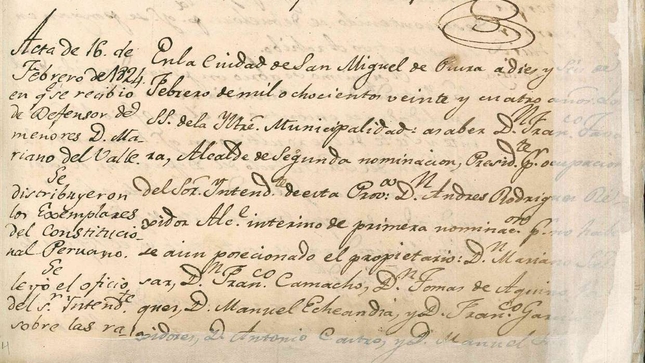 Acta de 16. de
Febrero de 1824.
en q.e se recibio
de Defensor de
menores D. Ma-
riano del Valle.
Se
distribuyeron
los Exemplares
del Constitucio
nal Peruano.
Se
leyó el oficio
del s.r Intend.te
sobre las ra
En la Ciudad de San Miguel de Piura a dies y
Febrero de mil ochocientos veinte y cuatro años
SS. de la Yltre. Municipalidad: asaber D.n Fran.co
ra, Alcalde de Segunda nominacion, Presid.te p.r ocupacion
del Sor. Yntend.te de esta Prov.a D.n Andres Rodrigues
vidor Alc.e interino de primera nominac.on p.r no
se aun posecionado el propietario: D.n Mariano
sar, D.n Fran.co Camacho, D.n Tomas de Aquino
quez, D. Manuel Echeandia, y D. Fran.co
idores, D. Antonio Castro, y D. Manuel